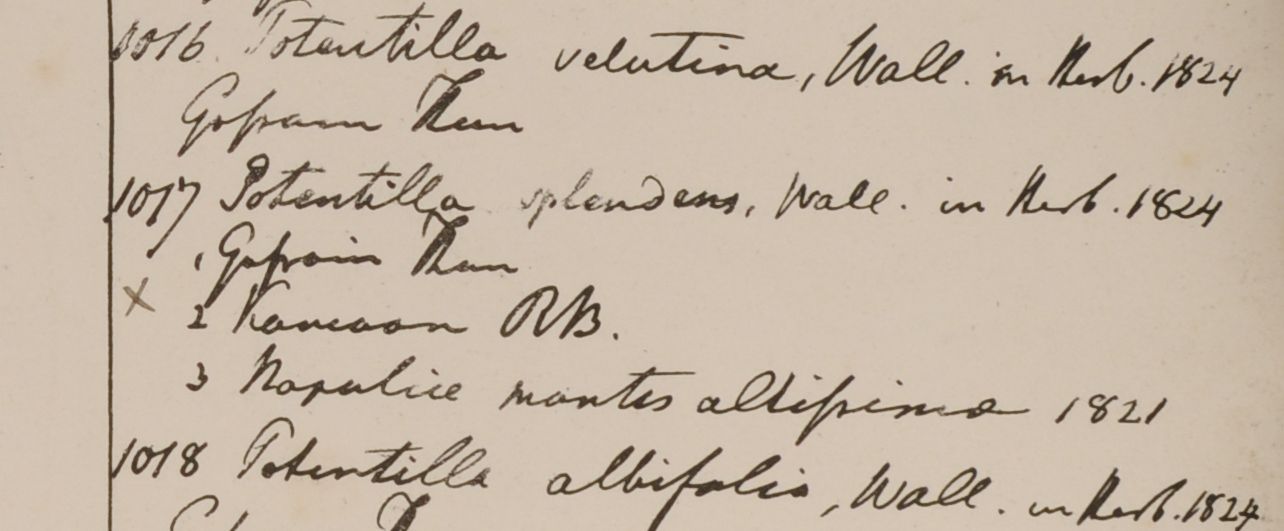 1016 Potentilla velutina, Wall. in Herb. 1824
Gossain Than
1017 Potentilla splendens, Wall. in Herb. 1824
1 Gossain Than
× 2 Kamaon RB.
3 Napaliae montes altissima 1821
1018 Potentilla albifolia, Wall. in Herb. 1824